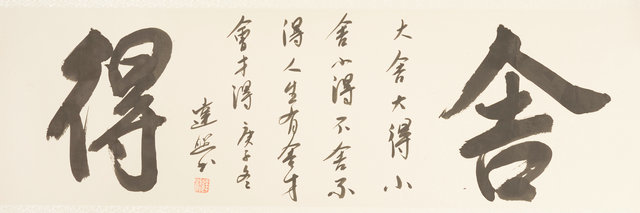 舍
大舍大得小
舍小得不舍不
得人生有舍才
會才得 庚子冬
達照书
得